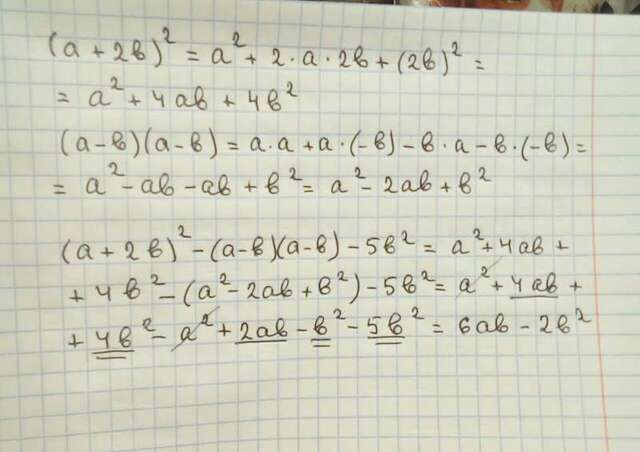 (a + 2b)² = a² + 2·a·2b + (2b)² =
= a² + 4ab + 4b²
(a-b)(a-b) = a·a + a·(-b) - b·a - b·(-b) =
= a² - ab - ab + b² = a² - 2ab + b²
(a + 2b)² - (a-b)(a-b) - 5b² = a² + 4ab +
+ 4b² - (a² - 2ab + b²) - 5b² = a² + 4ab +
+ 4b² - a² + 2ab - b² - 5b² = 6ab - 2b²